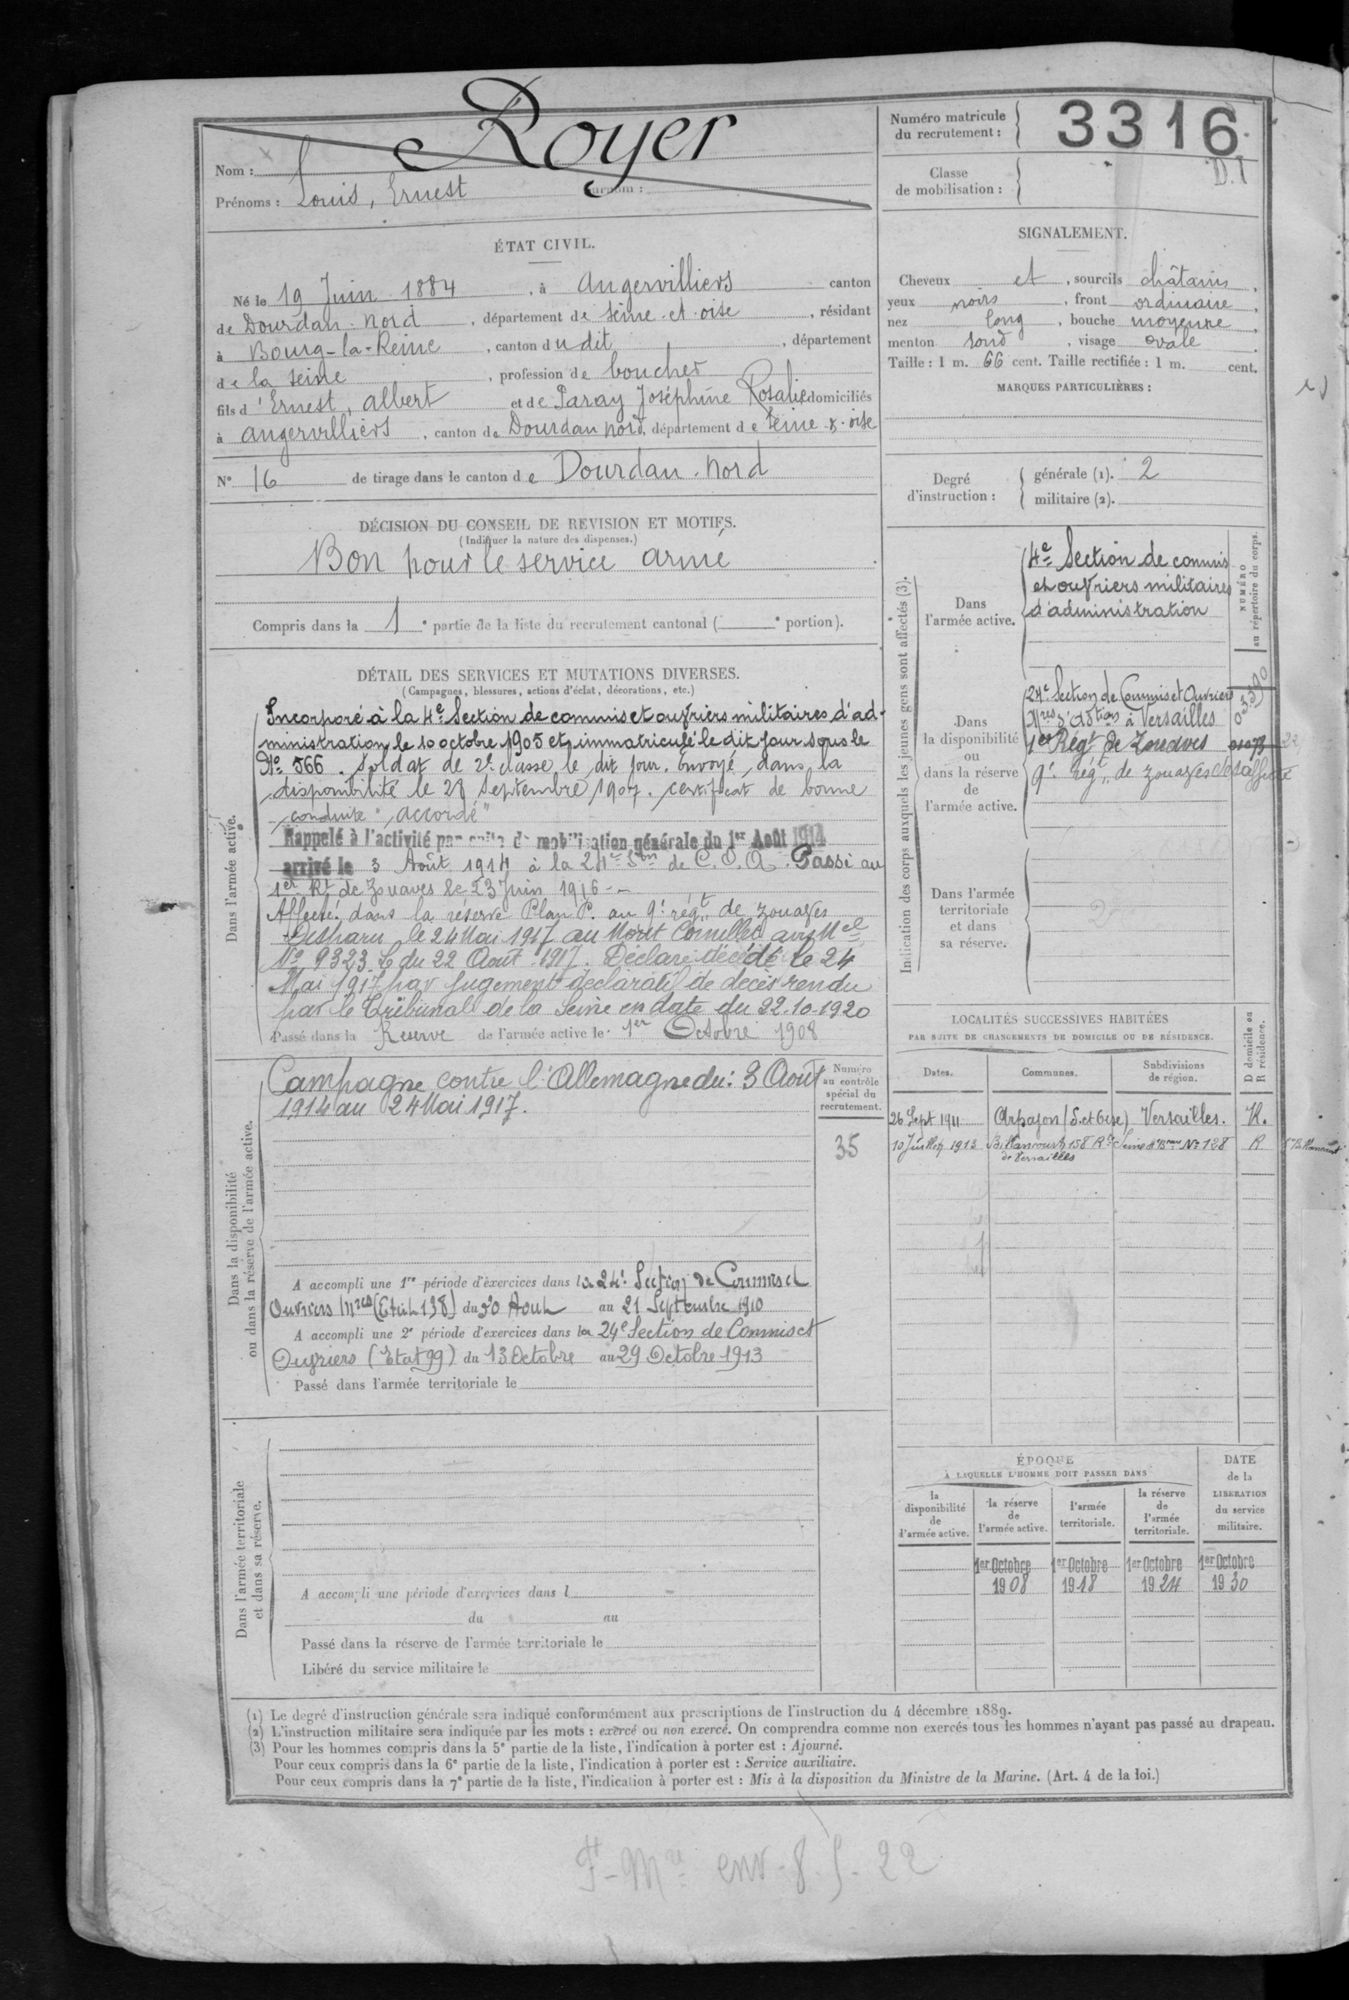 Nom : Royer
Prénoms : Louis, Ernest Surnom :
Numéro matricule du recrutement : 3316
Classe de mobilisation : D.I
ÉTAT CIVIL.
Né le 19 Juin 1884, à Angervilliers canton
de Dourdan-Nord, département de Seine-et-Oise, résidant
à Bourg-la-Reine, canton dudit, département
de la Seine, profession de boucher
fils d'Ernest, Albert et de Paray Joséphine Rosalie domiciliés
à Angervilliers, canton de Dourdan Nord, département de Seine-&-Oise
N° 16 de tirage dans le canton de Dourdan-Nord
SIGNALEMENT.
Cheveux et, sourcils châtains,
yeux noirs, front ordinaire,
nez long, bouche moyenne,
menton rond, visage ovale.
Taille : 1 m. 66 cent. Taille rectifiée : 1 m. cent.
MARQUES PARTICULIÈRES :
Degré d'instruction : générale (1). 2
militaire (2).
DÉCISION DU CONSEIL DE REVISION ET MOTIFS.
(Indiquer la nature des dispenses.)
Bon pour le service armé
Compris dans la 1e partie de la liste du recrutement cantonal ( e portion).
DÉTAIL DES SERVICES ET MUTATIONS DIVERSES.
(Campagnes, blessures, actions d'éclat, décorations, etc.)
Dans l'armée active.
Incorporé à la 4e Section de commis et ouvriers militaires d'ad-
ministration le 10 octobre 1905 et immatriculé le dit jour sous le
No 566. Soldat de 2e classe le dit jour. Envoyé dans la
disponibilité le 28 Septembre 1907. Certificat de bonne
conduite "accordé"
Rappelé à l'activité par suite de mobilisation générale du 1er Août 1914
arrivé le 3 Août 1914 à la 24e Son de C.O.A. Passé au
1er Rt de Zouaves le 23 Juin 1916
Affecté dans la réserve Plan P. au 9e régt de zouaves
Disparu le 24 Mai 1917 au Mont Cornillet avis Mel
No 9323 du 22 Août 1917. Déclaré décédé le 24
Mai 1917 par jugement déclaratif de décès rendu
par le Tribunal de la Seine en date du 22-10-1920
Passé dans la Réserve de l'armée active le 1er Octobre 1908
Indication des corps auxquels les jeunes gens sont affectés (3).
NUMÉRO au répertoire du corps.
Dans l'armée active.
4e Section de commis
et ouvriers militaires
d'administration
Dans la disponibilité ou dans la réserve de l'armée active.
24e Section de Commis et Ouvriers
Mres d'Adtion à Versailles
1er Régt de Zouaves
9e régt de zouaves
Dans l'armée territoriale et dans sa réserve.
Dans la disponibilité ou dans la réserve de l'armée active.
Campagne contre l'Allemagne du : 3 Août
1914 au 24 Mai 1917.
Numéro au contrôle spécial du recrutement.
35
A accompli une 1re période d'exercices dans la 24e Section de Commis et
Ouvriers Mres (Etat 138) du 30 Août au 21 Septembre 1910
A accompli une 2e période d'exercices dans la 24e Section de Commis et
Ouvriers (Etat 99) du 13 Octobre au 29 Octobre 1913
Passé dans l'armée territoriale le
LOCALITÉS SUCCESSIVES HABITÉES
PAR SUITE DE CHANGEMENTS DE DOMICILE OU DE RÉSIDENCE.
Dates. Communes. Subdivisions de région. D domicile ou R résidence.
26 Sept 1911 Arpajon (S. et Oise) Versailles. R.
10 Juillet 1913 Billancourt 158 Rte de Versailles Seine 4e Beau No 128 R
Dans l'armée territoriale et dans sa réserve.
A accompli une période d'exercices dans l
du au
Passé dans la réserve de l'armée territoriale le
Libéré du service militaire le
ÉPOQUE
À LAQUELLE L'HOMME DOIT PASSER DANS
la disponibilité de l'armée active. la réserve de l'armée active. l'armée territoriale. la réserve de l'armée territoriale. DATE de la LIBÉRATION du service militaire.
1er Octobre 1908 1er Octobre 1918 1er Octobre 1924 1er Octobre 1930
(1) Le degré d'instruction générale sera indiqué conformément aux prescriptions de l'instruction du 4 décembre 1889.
(2) L'instruction militaire sera indiquée par les mots : exercé ou non exercé. On comprendra comme non exercés tous les hommes n'ayant pas passé au drapeau.
(3) Pour les hommes compris dans la 5e partie de la liste, l'indication à porter est : Ajourné.
Pour ceux compris dans la 6e partie de la liste, l'indication à porter est : Service auxiliaire.
Pour ceux compris dans la 7e partie de la liste, l'indication à porter est : Mis à la disposition du Ministre de la Marine. (Art. 4 de la loi.)